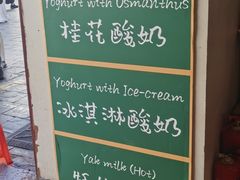 Yoghurt with Osmanthus
桂花酸奶
Yoghurt with Ice-cream
冰淇淋酸奶
Yak milk (Hot)